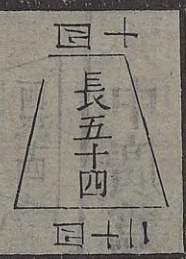 十四
長五十四
二十四